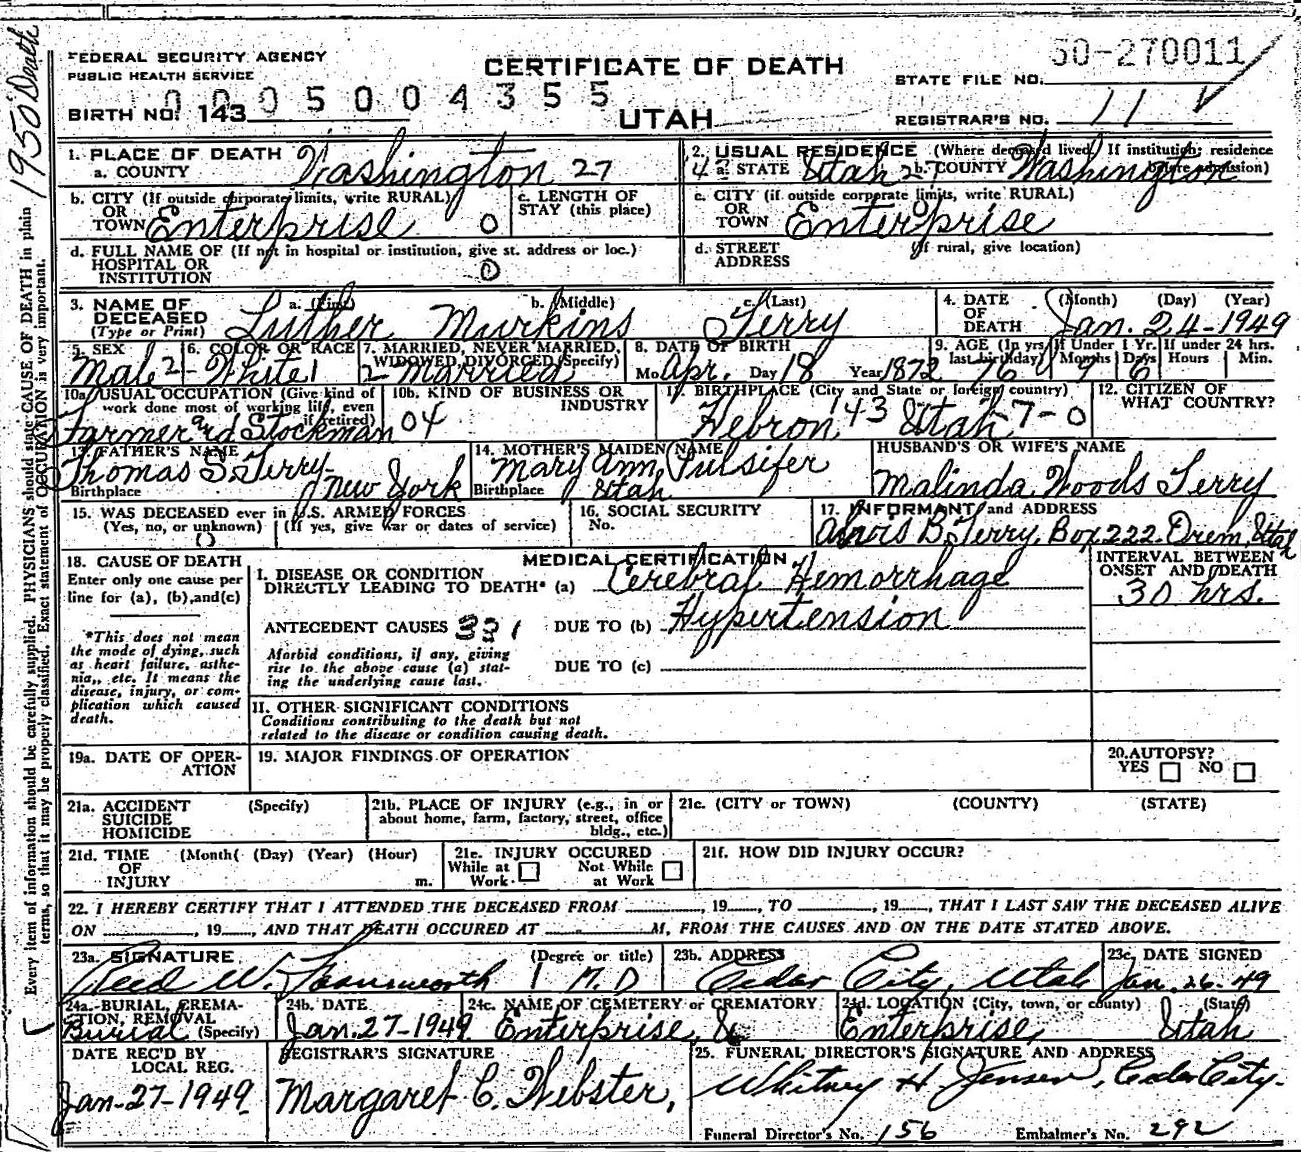 1950 Death
Every item of information should be carefully supplied. PHYSICIANS should state CAUSE OF DEATH in plain
terms, so that it may be properly classified. Exact statement of OCCUPATION is very important.
FEDERAL SECURITY AGENCY
PUBLIC HEALTH SERVICE
BIRTH NO. 143
0005004355
CERTIFICATE OF DEATH
UTAH
50-270011
STATE FILE NO.
REGISTRAR'S NO. 11
1. PLACE OF DEATH
a. COUNTY Washington 27
2. USUAL RESIDENCE (Where deceased lived. If institution; residence before admission)
a. STATE Utah b. COUNTY Washington
b. CITY (If outside corporate limits, write RURAL) OR TOWN Enterprise 0
c. LENGTH OF STAY (this place)
c. CITY (if outside corporate limits, write RURAL) OR TOWN Enterprise
d. FULL NAME OF (If not in hospital or institution, give st. address or loc.) HOSPITAL OR INSTITUTION 0
d. STREET ADDRESS (If rural, give location)
3. NAME OF DECEASED (Type or Print) a. (First) Luther b. (Middle) Murkins c. (Last) Terry
4. DATE OF DEATH (Month) (Day) (Year) Jan. 24-1949
5. SEX Male 2
6. COLOR OR RACE White 1
7. MARRIED, NEVER MARRIED, WIDOWED, DIVORCED (Specify) 2 Married
8. DATE OF BIRTH Mo. Apr. Day 18 Year 1872
9. AGE (In yrs. last birthday) 76 If Under 1 Yr. Months 9 Days 6 If under 24 hrs. Hours Min.
10a. USUAL OCCUPATION (Give kind of work done most of working life, even if retired) Farmer and Stockman
10b. KIND OF BUSINESS OR INDUSTRY 04
11. BIRTHPLACE (City and State or foreign country) Hebron, 143 Utah 7-0
12. CITIZEN OF WHAT COUNTRY?
13. FATHER'S NAME Thomas S. Terry
Birthplace New York
14. MOTHER'S MAIDEN NAME Mary Ann Pulsifer
Birthplace Utah
HUSBAND'S OR WIFE'S NAME
Malinda Woods Terry
15. WAS DECEASED ever in U.S. ARMED FORCES
(Yes, no, or unknown) (If yes, give war or dates of service)
0
16. SOCIAL SECURITY No.
17. INFORMANT and ADDRESS
B. Terry, Box 222 Orem, Utah
18. CAUSE OF DEATH
Enter only one cause per line for (a), (b), and (c)
*This does not mean the mode of dying, such as heart failure, asthenia, etc. It means the disease, injury, or complication which caused death.
MEDICAL CERTIFICATION
I. DISEASE OR CONDITION DIRECTLY LEADING TO DEATH* (a) Cerebral Hemorrhage
INTERVAL BETWEEN ONSET AND DEATH
30 hrs.
ANTECEDENT CAUSES 331 DUE TO (b) Hypertension
Morbid conditions, if any, giving rise to the above cause (a) stating the underlying cause last.
DUE TO (c)
II. OTHER SIGNIFICANT CONDITIONS
Conditions contributing to the death but not related to the disease or condition causing death.
19a. DATE OF OPERATION
19. MAJOR FINDINGS OF OPERATION
20. AUTOPSY?
YES NO
21a. ACCIDENT SUICIDE HOMICIDE (Specify)
21b. PLACE OF INJURY (e.g., in or about home, farm, factory, street, office bldg., etc.)
21c. (CITY or TOWN) (COUNTY) (STATE)
21d. TIME OF INJURY (Month( (Day) (Year) (Hour) m.
21e. INJURY OCCURED
While at Work Not While at Work
21f. HOW DID INJURY OCCUR?
22. I HEREBY CERTIFY THAT I ATTENDED THE DECEASED FROM ______, 19__, TO ______, 19__, THAT I LAST SAW THE DECEASED ALIVE
ON ______, 19__, AND THAT DEATH OCCURED AT ______M, FROM THE CAUSES AND ON THE DATE STATED ABOVE.
23a. SIGNATURE (Degree or title)
Reed W. Farnsworth 1 M.D
23b. ADDRESS
Cedar City, Utah
23c. DATE SIGNED
Jan. 26-49
24a. BURIAL, CREMATION, REMOVAL (Specify) Burial
24b. DATE
Jan. 27-1949
24c. NAME OF CEMETERY or CREMATORY
Enterprise,
24d. LOCATION (City, town, or county) (State)
Enterprise, Utah
DATE REC'D BY LOCAL REG.
Jan-27-1949
REGISTRAR'S SIGNATURE
Margaret C. Webster,
25. FUNERAL DIRECTOR'S SIGNATURE AND ADDRESS
Whitney H. Jensen, Cedar City.
Funeral Director's No. 156 Embalmer's No. 292